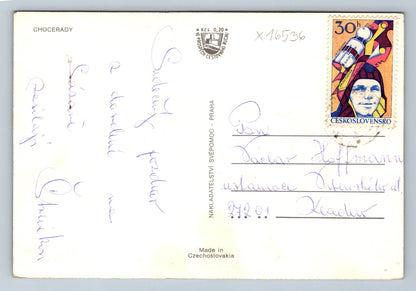 CHOCERADY
KčS 0,20
X16536
30h
ČESKOSLOVENSKO
Srdečný pozdrav
z dovolené na
Sázavě
zasílají
NAKLADATELSTVÍ SVÉPOMOC - PRAHA
Pan
Václav Hoffmann
ul.
272 01 Kladno
Made in
Czechoslovakia